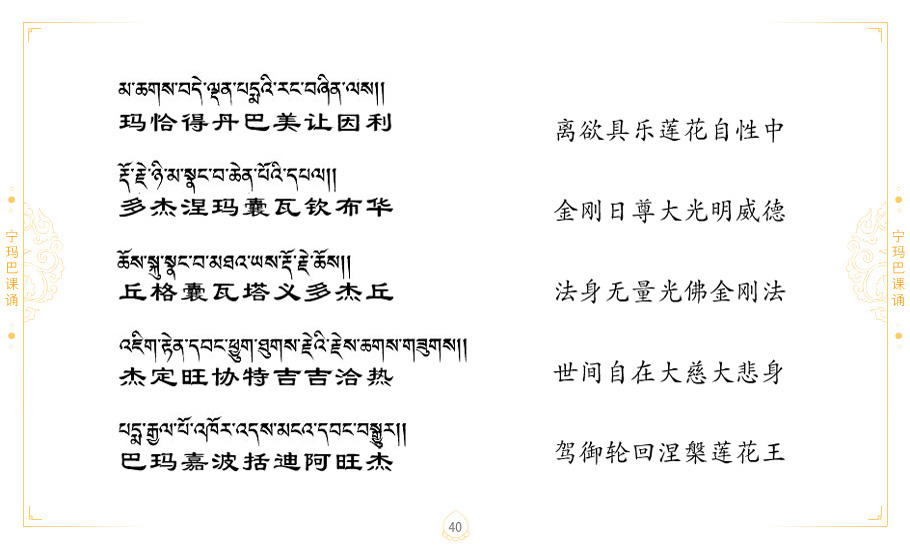 མ་ཆགས་བདེ་ལྡན་པདྨའི་རང་བཞིན་ལས།།
玛恰得丹巴美让因利
离欲具乐莲花自性中
རྡོ་རྗེ་ཉི་མ་སྣང་བ་ཆེན་པོའི་དཔལ།།
多杰涅玛囊瓦钦布华
金刚日尊大光明威德
ཆོས་སྐུ་སྣང་བ་མཐའ་ཡས་རྡོ་རྗེ་ཆོས།།
丘格囊瓦塔义多杰丘
法身无量光佛金刚法
འཇིག་རྟེན་དབང་ཕྱུག་ཐུགས་རྗེའི་རྗེས་ཆགས་གཟུགས།།
杰定旺协特吉吉洽热
世间自在大慈大悲身
པདྨ་རྒྱལ་པོ་འཁོར་འདས་མངའ་དབང་བསྒྱུར།།
巴玛嘉波括迪阿旺杰
驾御轮回涅槃莲花王
宁玛巴课诵
宁玛巴课诵
40